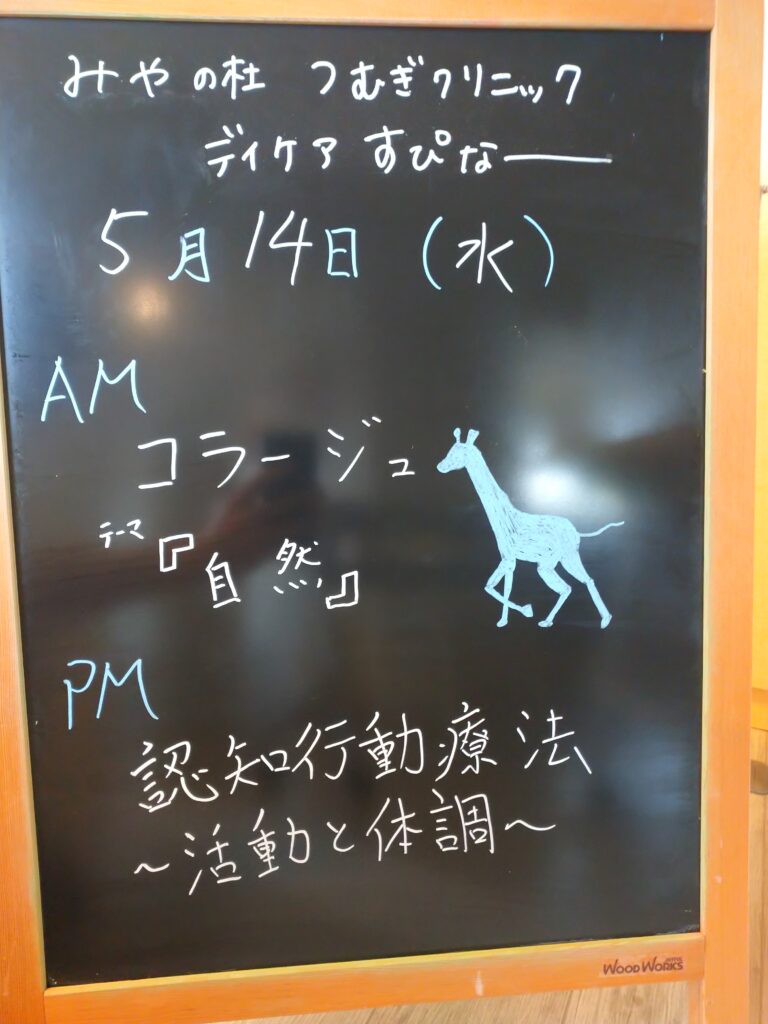 みやの杜 つむぎクリニック
デイケア すぴなー
5月14日(水)
AM
コラージュ
テーマ『自然』
PM
認知行動療法
~活動と体調~
WOODWORKS